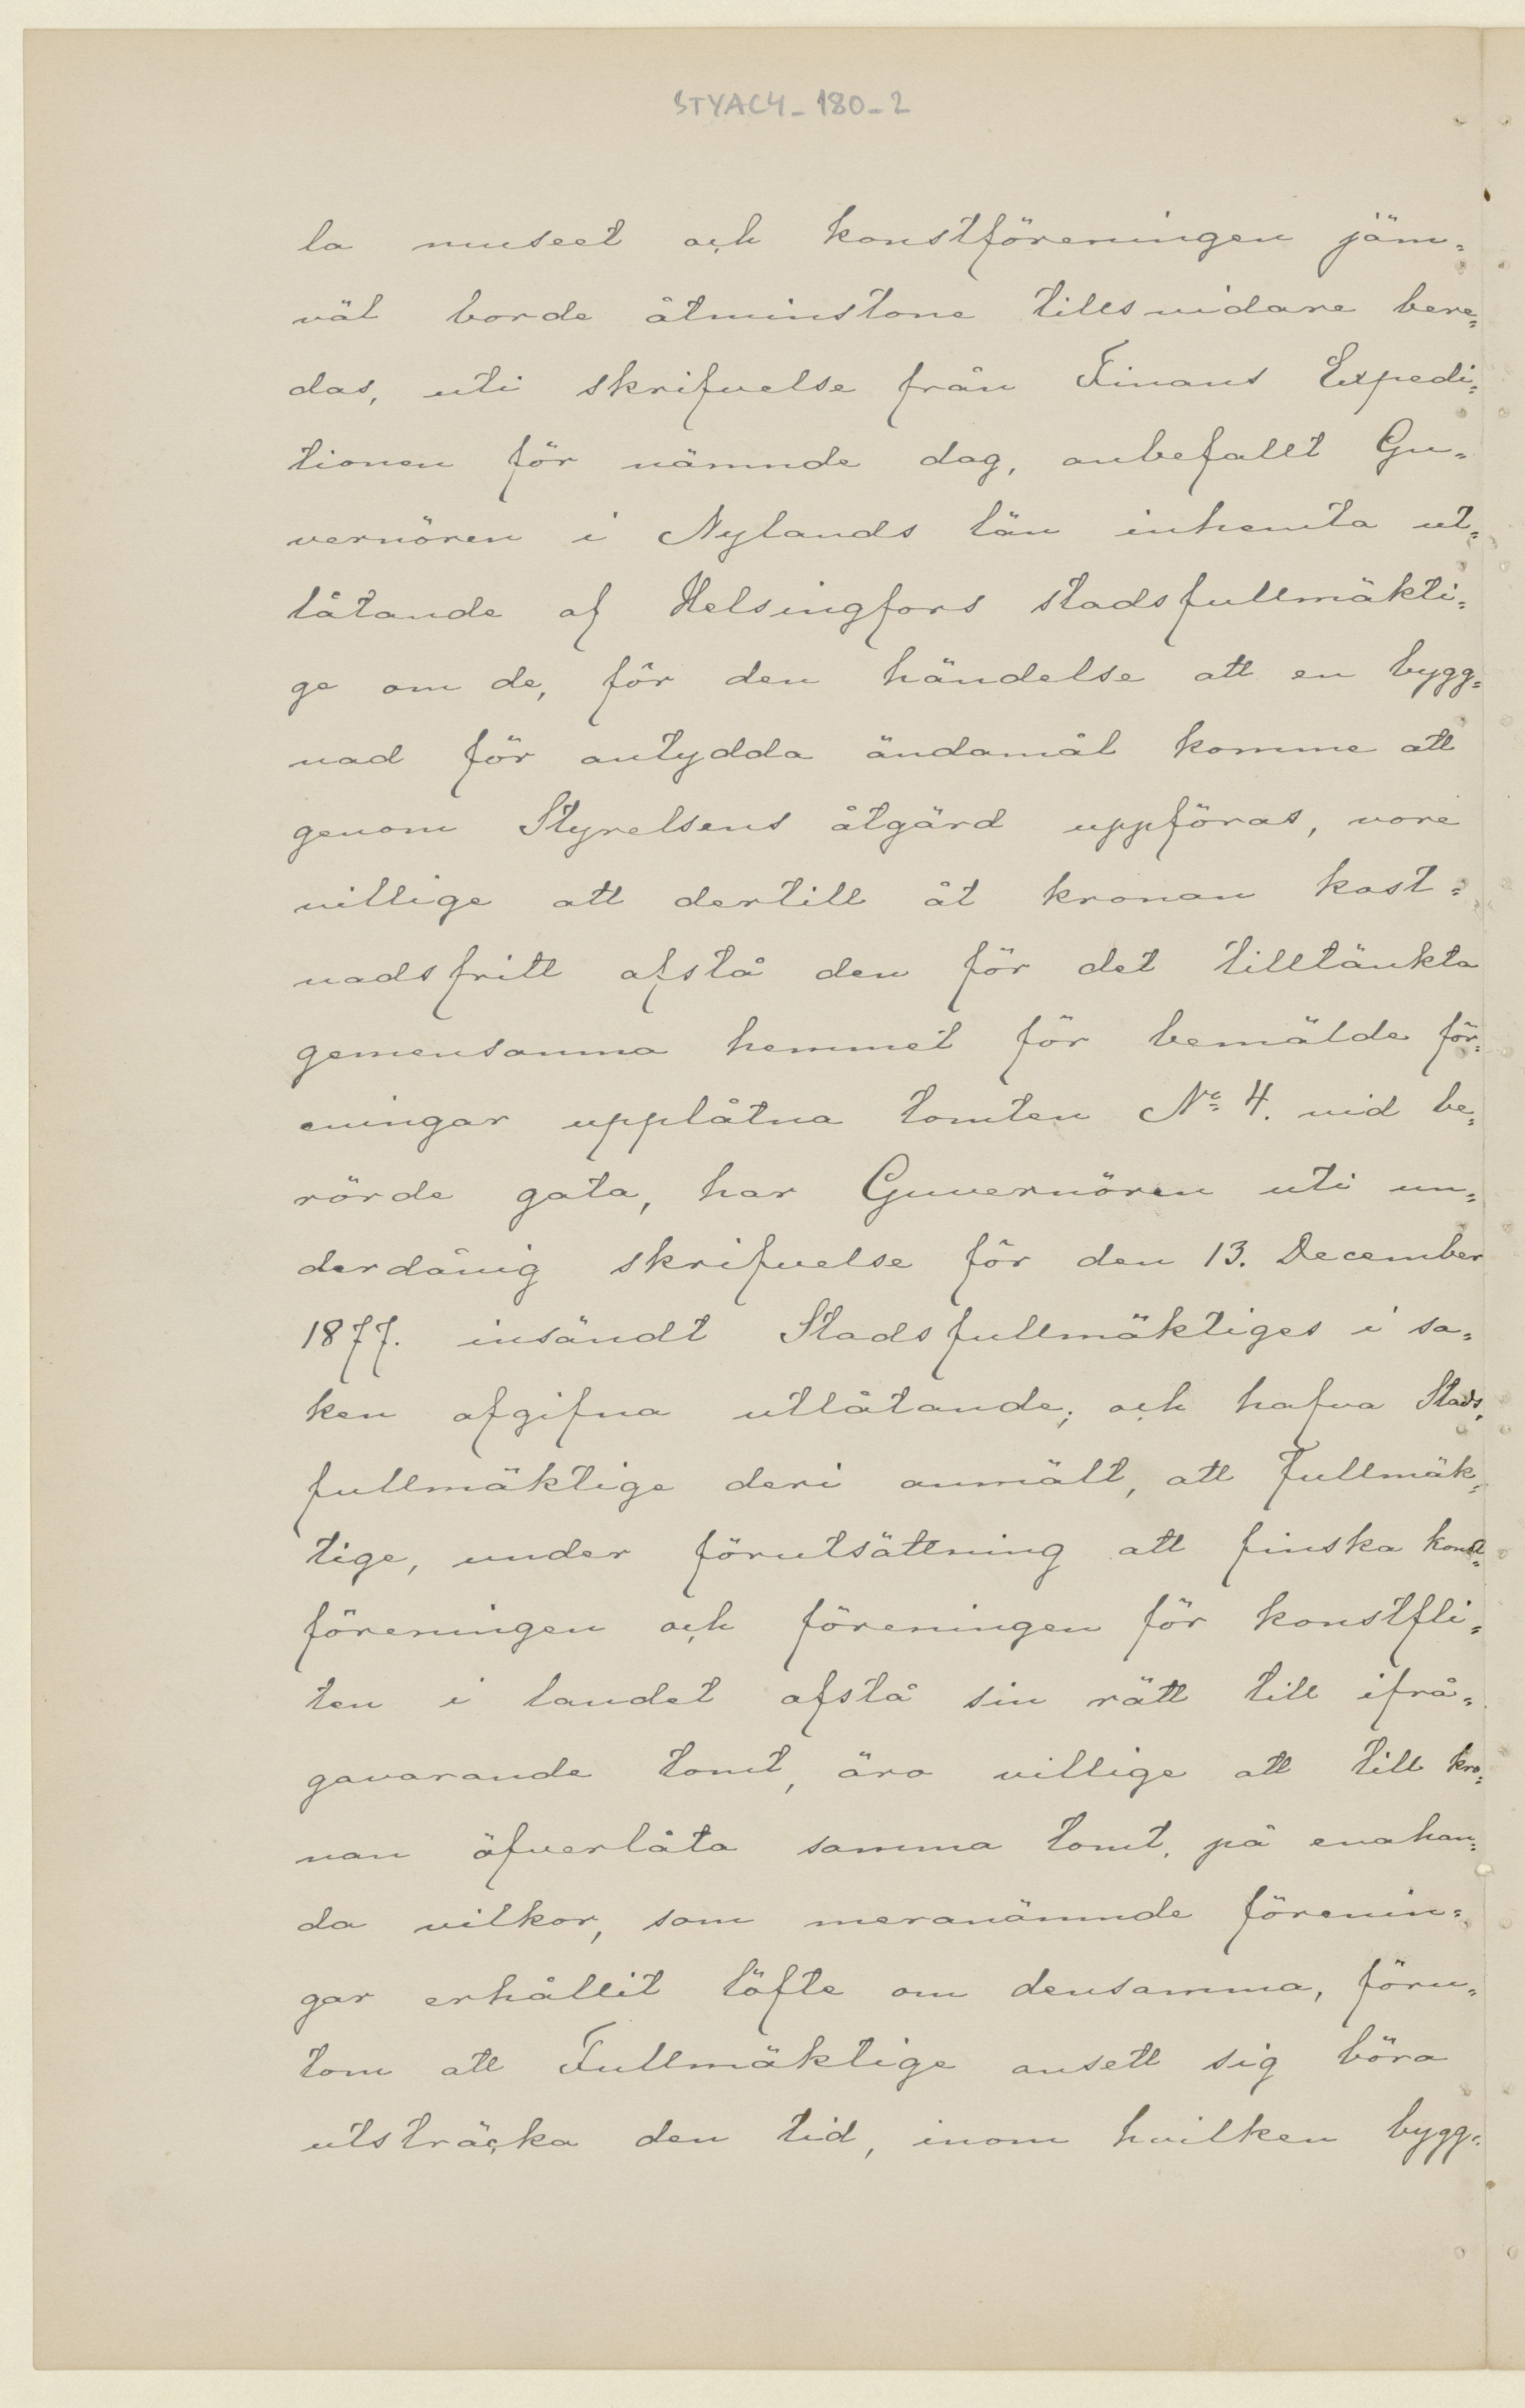 STYAC4_180_2
la museet och konstföreningen jäm=
väl borde åtminstone tillsvidare bere=
das, uti skrifvelse från Finans Expedi=
tionen för nämnde dag, anbefallt Gu=
vernören i Nylands län inhemta ut=
låtande af Helsingfors stadsfullmäkti=
ge om de, för den händelse att en bygg=
nad för antydda ändamål komme att
genom Styrelsens åtgärd uppföras, vore
villige att dertill åt kronan kost=
nadsfritt afstå den för det tilltänkta
gemensamma hemmet för bemälde för=
eningar upplåtna tomten No 4. vid be=
rörde gata, har Guvernören uti un=
derdånig skrifvelse för den 13. December
1877. insändt Stadsfullmäktiges i sa=
ken afgifna utlåtande; och hafva Stads=
fullmäktige deri anmält, att Fullmäk=
tige, under förutsättning att finska konst=
föreningen och föreningen för konstfli=
ten i landet afstå sin rätt till ifrå=
gavarande tomt, äro villige att till kro=
nan öfverlåta samma tomt, på enahan=
da vilkor, som meranämnde förenin=
gar erhållit löfte om densamma, föru=
tom att Fullmäktige ansett sig böra
utsträcka den tid, inom hvilken bygg=